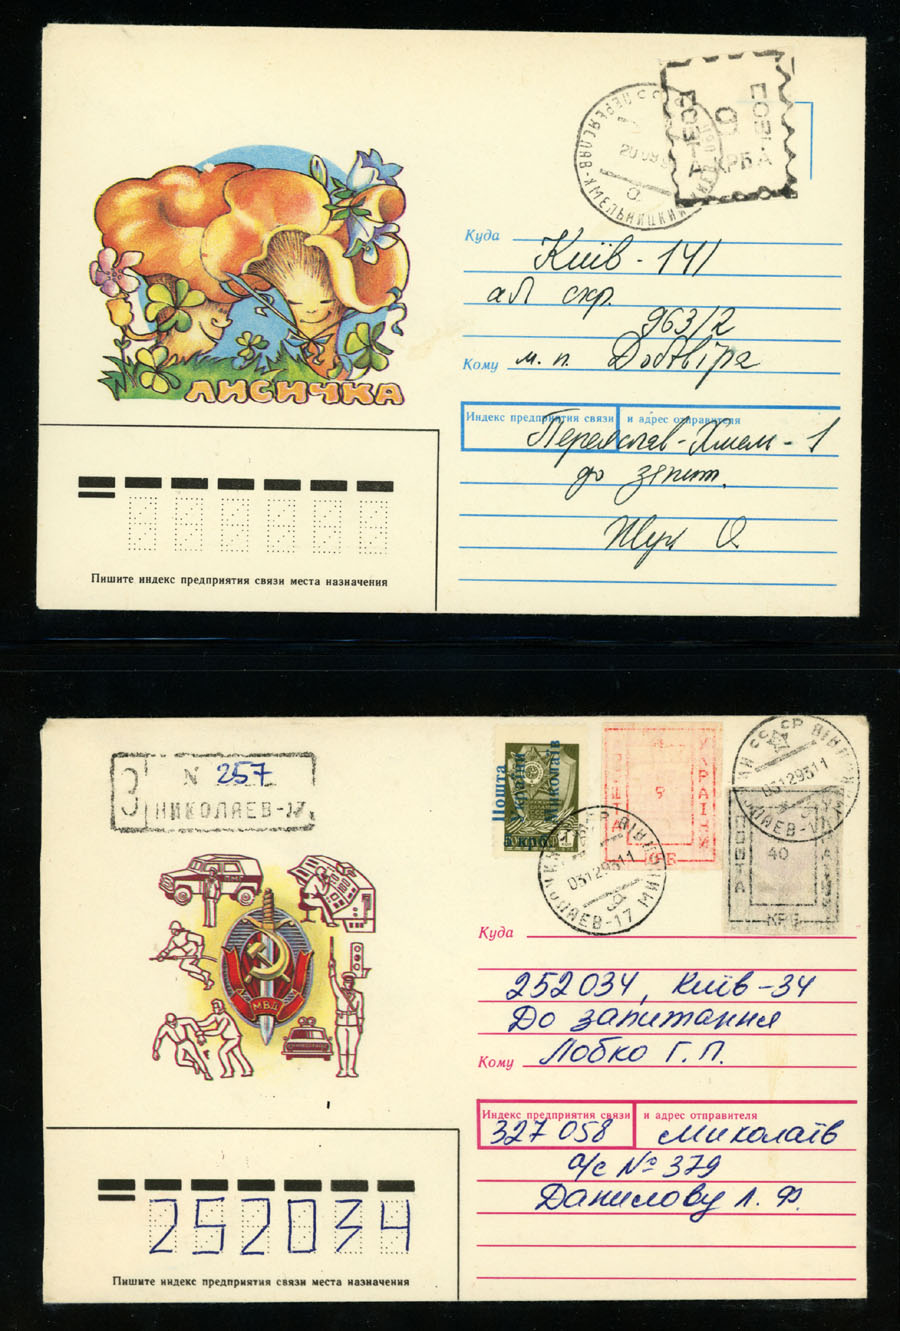 ПЕРЕЯСЛАВ-ХМЕЛЬНИЦКИЙ
20 09 9
а
6
КРБ
Куда
Київ - 141
ал скр.
963/2
Кому
м. п.
Индекс предприятия связи
и адрес отправителя
Переяслав-Хмел - 1
до запит.
Жук О.
ЛИСИЧКА
Пишите индекс предприятия связи места назначения
З
N 257
НИКОЛАЕВ-17
Пошта
України
Миколаїв
5 крб
УКРАЇНИ
5
031293 11
НИКОЛАЕВ-17
СССР
031293 11
40
КРБ
МВД
Куда
252034, Київ-34
До запитання
Кому
Лобко Г. П.
Индекс предприятия связи
и адрес отправителя
327058
Миколаїв
а/с № 379
Данилову Л. Ф.
252034
Пишите индекс предприятия связи места назначения